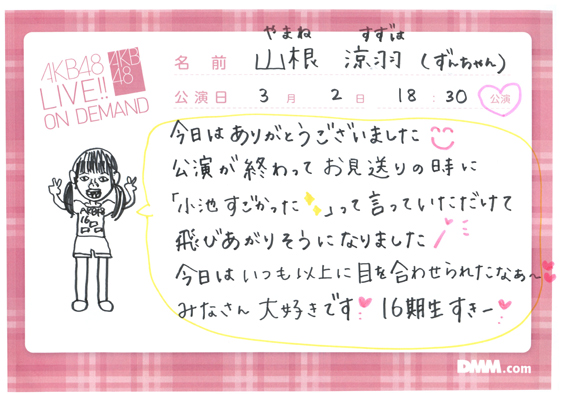 やまね すずは
AKB48 LIVE!! ON DEMAND
AKB48
名前 山根 涼羽(ずんちゃん)
公演日 3月 2日 18:30 公演
今日はありがとうございました
公演が終わってお見送りの時に
「小池すごかった」って言っていただけて
飛びあがりそうになりました
今日はいつも以上に目を合わせられたなぁ〜
みなさん大好きです 16期生すきー
AKB
16
DMM.com